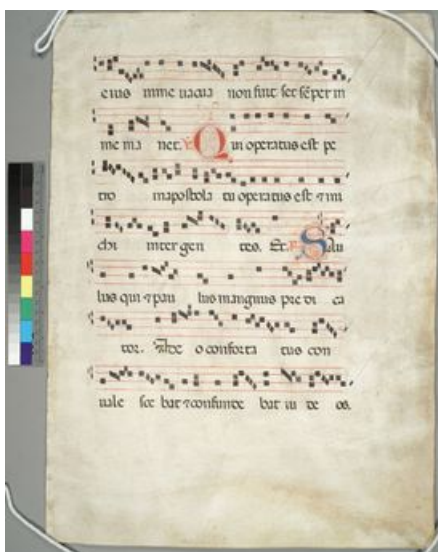 eius in me uacua non fuit set sēper in
me ma net. V. Qui operatus est pe
tro in apostola tu operatus est ⁊ mi
chi inter gen tes. Et. Sau
lus qui ⁊ pau lus magnus pre di ca
tor. A de o conforta tus con
uale sce bat ⁊ confunde bat iu de os.